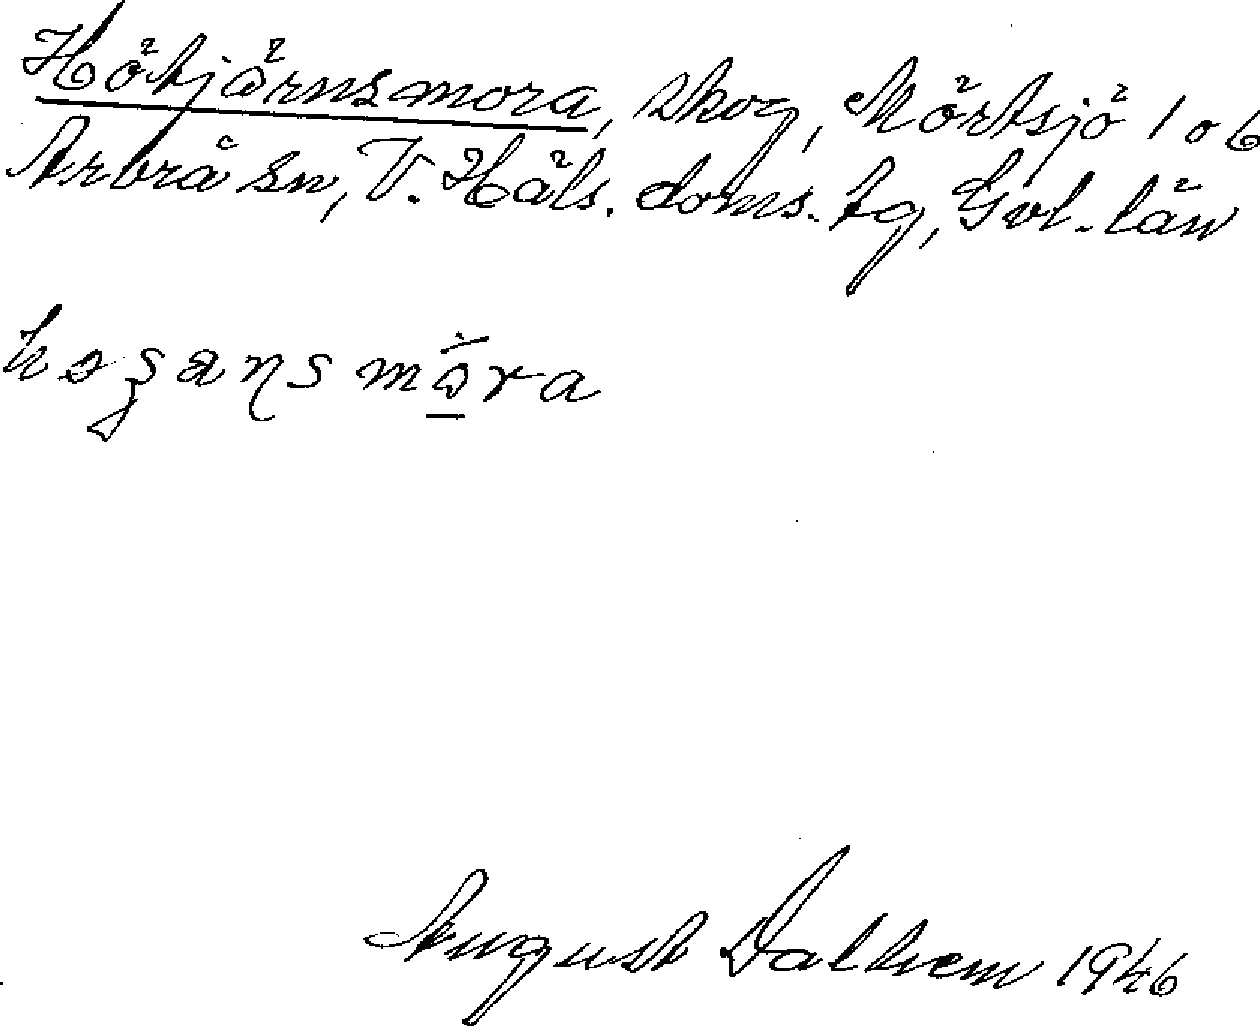 Hötjärnsmora, skog, Mörtsjö 1 o 6
Arbrå sn, V. Häls. doms. tg, Gvl. län
August Dalhem 1946